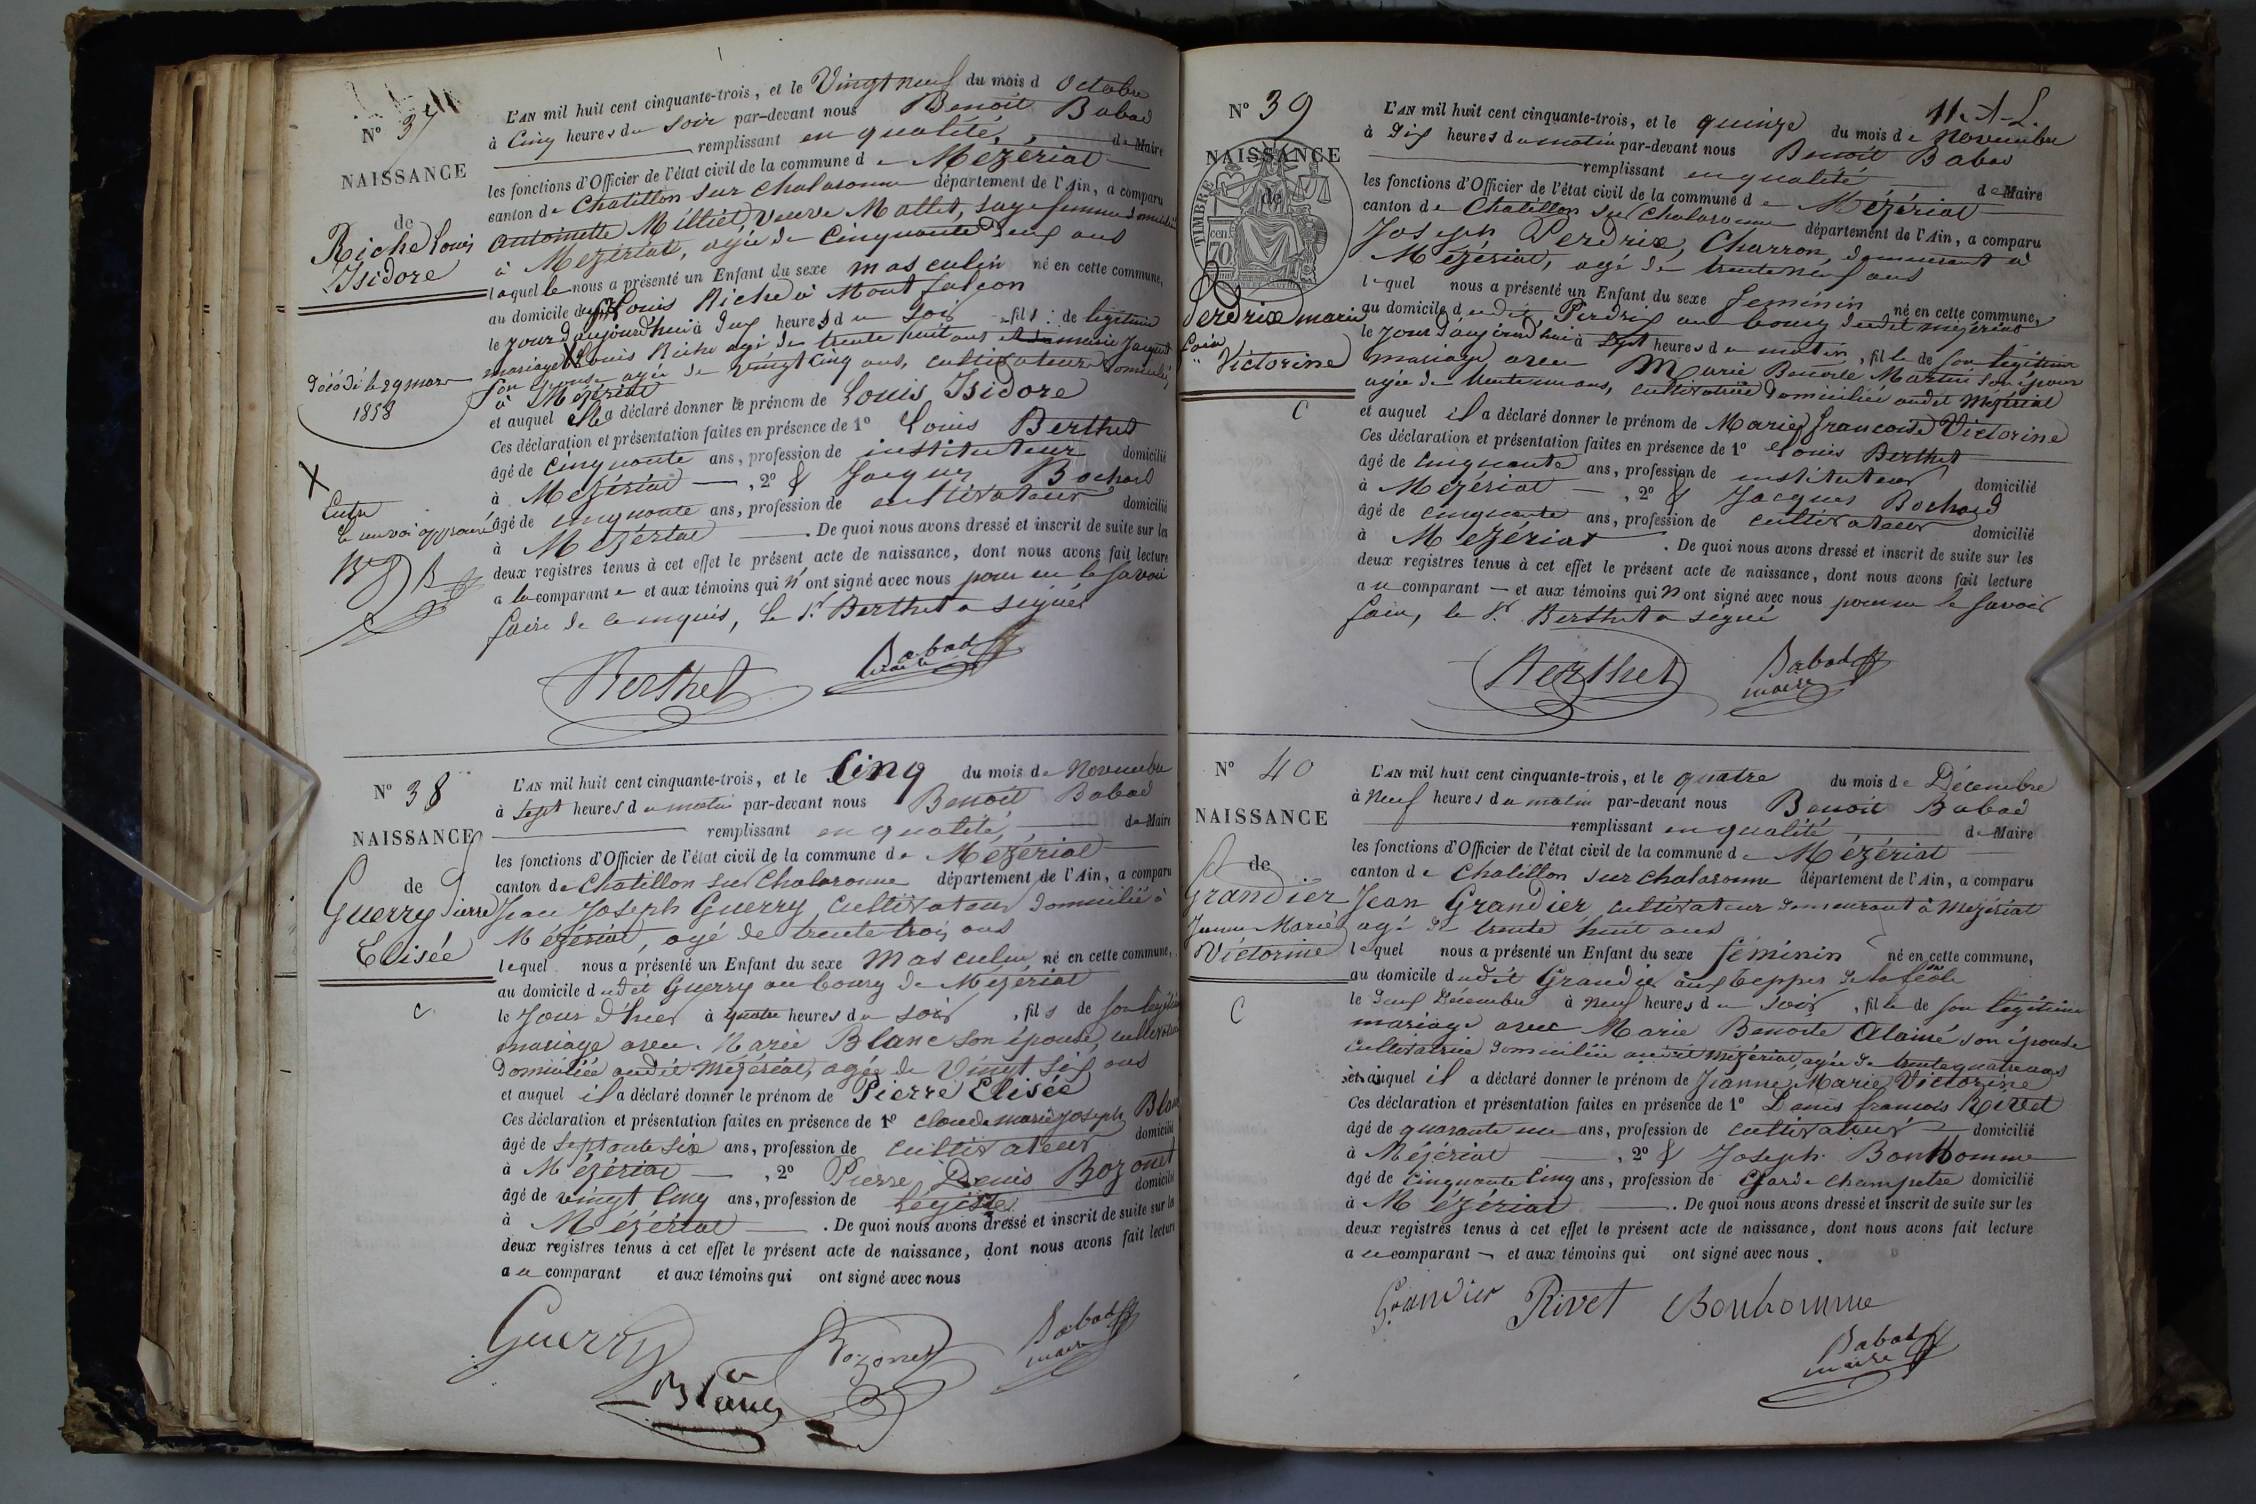 N° 37
NAISSANCE
de
Riche Louis
Isidore
Décédé le 29 mars
1858
X
Entre
le renvoi approuvé
L'AN mil huit cent cinquante-trois, et le Vingt neuf du mois d Octobre
à Cinq heures du soir par-devant nous Benoit Babad
remplissant en qualité, de Maire
les fonctions d'Officier de l'état civil de la commune de Mézériat
canton de Chatillon sur Chalaronne département de l'Ain, a comparu
antoinette Milliet, veuve Mallet, sage femme domiciliée
à Mézériat, agée de cinquante deux ans
laquelle nous a présenté un Enfant du sexe masculin né en cette commune,
au domicile de Louis Riche à Montfalcon
le jour d'aujourd'hui à deux heures du soir fils de légitime
mariage X Louis Riche agé de trente huit ans et marie Jacquet
son épouse agée de vingt cinq ans, cultivateurs domiciliés
à Mézériat
et auquel elle a déclaré donner le prénom de Louis Isidore
Ces déclaration et présentation faites en présence de 1° Louis Berthet
âgé de cinquante ans, profession de instituteur domicilié
à Mézériat , 2° & Jacques Bochard
âgé de cinquante ans, profession de cultivateur domicilié
à Mézériat . De quoi nous avons dressé et inscrit de suite sur les
deux registres tenus à cet effet le présent acte de naissance, dont nous avons fait lecture
a la comparante et aux témoins qui n'ont signé avec nous pour ne le savoir
faire de ce enquis, le Sr Berthet a signé
Berthet Babad
maire
N° 38
NAISSANCE
de
Guerry Pierre
Elisée
C
L'AN mil huit cent cinquante-trois, et le Cinq du mois de Novembre
à sept heures du matin par-devant nous Benoit Babad
remplissant en qualité, de Maire
les fonctions d'Officier de l'état civil de la commune de Mézériat
canton de Chatillon sur Chalaronne département de l'Ain, a comparu
Jean Joseph Guerry, cultivateur domicilié à
Mézériat, agé de trente trois ans
lequel nous a présenté un Enfant du sexe masculin né en cette commune,
au domicile dudit Guerry au bourg de Mézériat
le jour d'hier à quatre heures du soir, fils de son légitime
mariage avec Marie Blanc son épouse, cultivatrice
domiciliée audit Mézériat, agée de Vingt six ans
et auquel il a déclaré donner le prénom de Pierre Elisée
Ces déclaration et présentation faites en présence de 1° Claude marie Joseph Blanc
âgé de septante six ans, profession de cultivateur domicilié
à Mézériat , 2° Pierre Denis Bozonet
âgé de vingt cinq ans, profession de Légiste domicilié
à Mézériat . De quoi nous avons dressé et inscrit de suite sur les
deux registres tenus à cet effet le présent acte de naissance, dont nous avons fait lecture
a ce comparant et aux témoins qui ont signé avec nous
Guerry Bozonet Babad
maire
Blanc
11. A-L.
N° 39
NAISSANCE
de
TIMBRE
cen. 70
Perdrix marie
Victorine
C
L'AN mil huit cent cinquante-trois, et le quinze du mois de Novembre
à Dix heures du matin par-devant nous Benoit Babad
remplissant en qualité de Maire
les fonctions d'Officier de l'état civil de la commune de Mézériat
canton de Chatillon sur Chalaronne département de l'Ain, a comparu
Joseph Perdrix, Charron, demeurant à
Mézériat, agé de trente neuf ans
lequel nous a présenté un Enfant du sexe féminin né en cette commune,
au domicile dudit Perdrix au bourg dudit mézériat
le jour d'aujourd'hui à sept heures du matin, fille de son légitime
mariage avec Marie Benoite Martin son épouse
agée de trente un ans, cultivatrice domiciliée audit Mézériat
et auquel il a déclaré donner le prénom de Marie francoise Victorine
Ces déclaration et présentation faites en présence de 1° Louis Berthet
âgé de cinquante ans, profession de instituteur domicilié
à Mézériat , 2° & Jacques Bochard
âgé de cinquante ans, profession de cultivateur domicilié
à Mézériat . De quoi nous avons dressé et inscrit de suite sur les
deux registres tenus à cet effet le présent acte de naissance, dont nous avons fait lecture
a ce comparant et aux témoins qui n'ont signé avec nous pour ne le savoir
faire, le Sr. Berthet a signé
Berthet Babad
maire
N° 40
NAISSANCE
de
Grandier
Jeanne Marie
Victorine
C
L'AN mil huit cent cinquante-trois, et le quatre du mois de Décembre
à Neuf heures du matin par-devant nous Benoit Babad
remplissant en qualité de Maire
les fonctions d'Officier de l'état civil de la commune de Mézériat
canton de Chatillon sur chalaronne département de l'Ain, a comparu
Jean Grandier, cultivateur demeurant à Mézériat
agé de trente huit ans
lequel nous a présenté un Enfant du sexe féminin né en cette commune,
au domicile dudit Grandier aux teppes de la
le deux Décembre à neuf heures du soir, fille de son légitime
mariage avec Marie Benoite Alainé son épouse
cultivatrice domiciliée audit Mézériat, agée de trente quatre ans
et auquel il a déclaré donner le prénom de Jeanne Marie Victorine
Ces déclaration et présentation faites en présence de 1° Denis francois Rivet
âgé de quarante un ans, profession de cultivateur domicilié
à Mézériat , 2° & Joseph Bonhomme
âgé de cinquante cinq ans, profession de Garde champetre domicilié
à Mézériat . De quoi nous avons dressé et inscrit de suite sur les
deux registres tenus à cet effet le présent acte de naissance, dont nous avons fait lecture
a ce comparant et aux témoins qui ont signé avec nous.
Grandier Rivet Bonhomme
Babad
maire